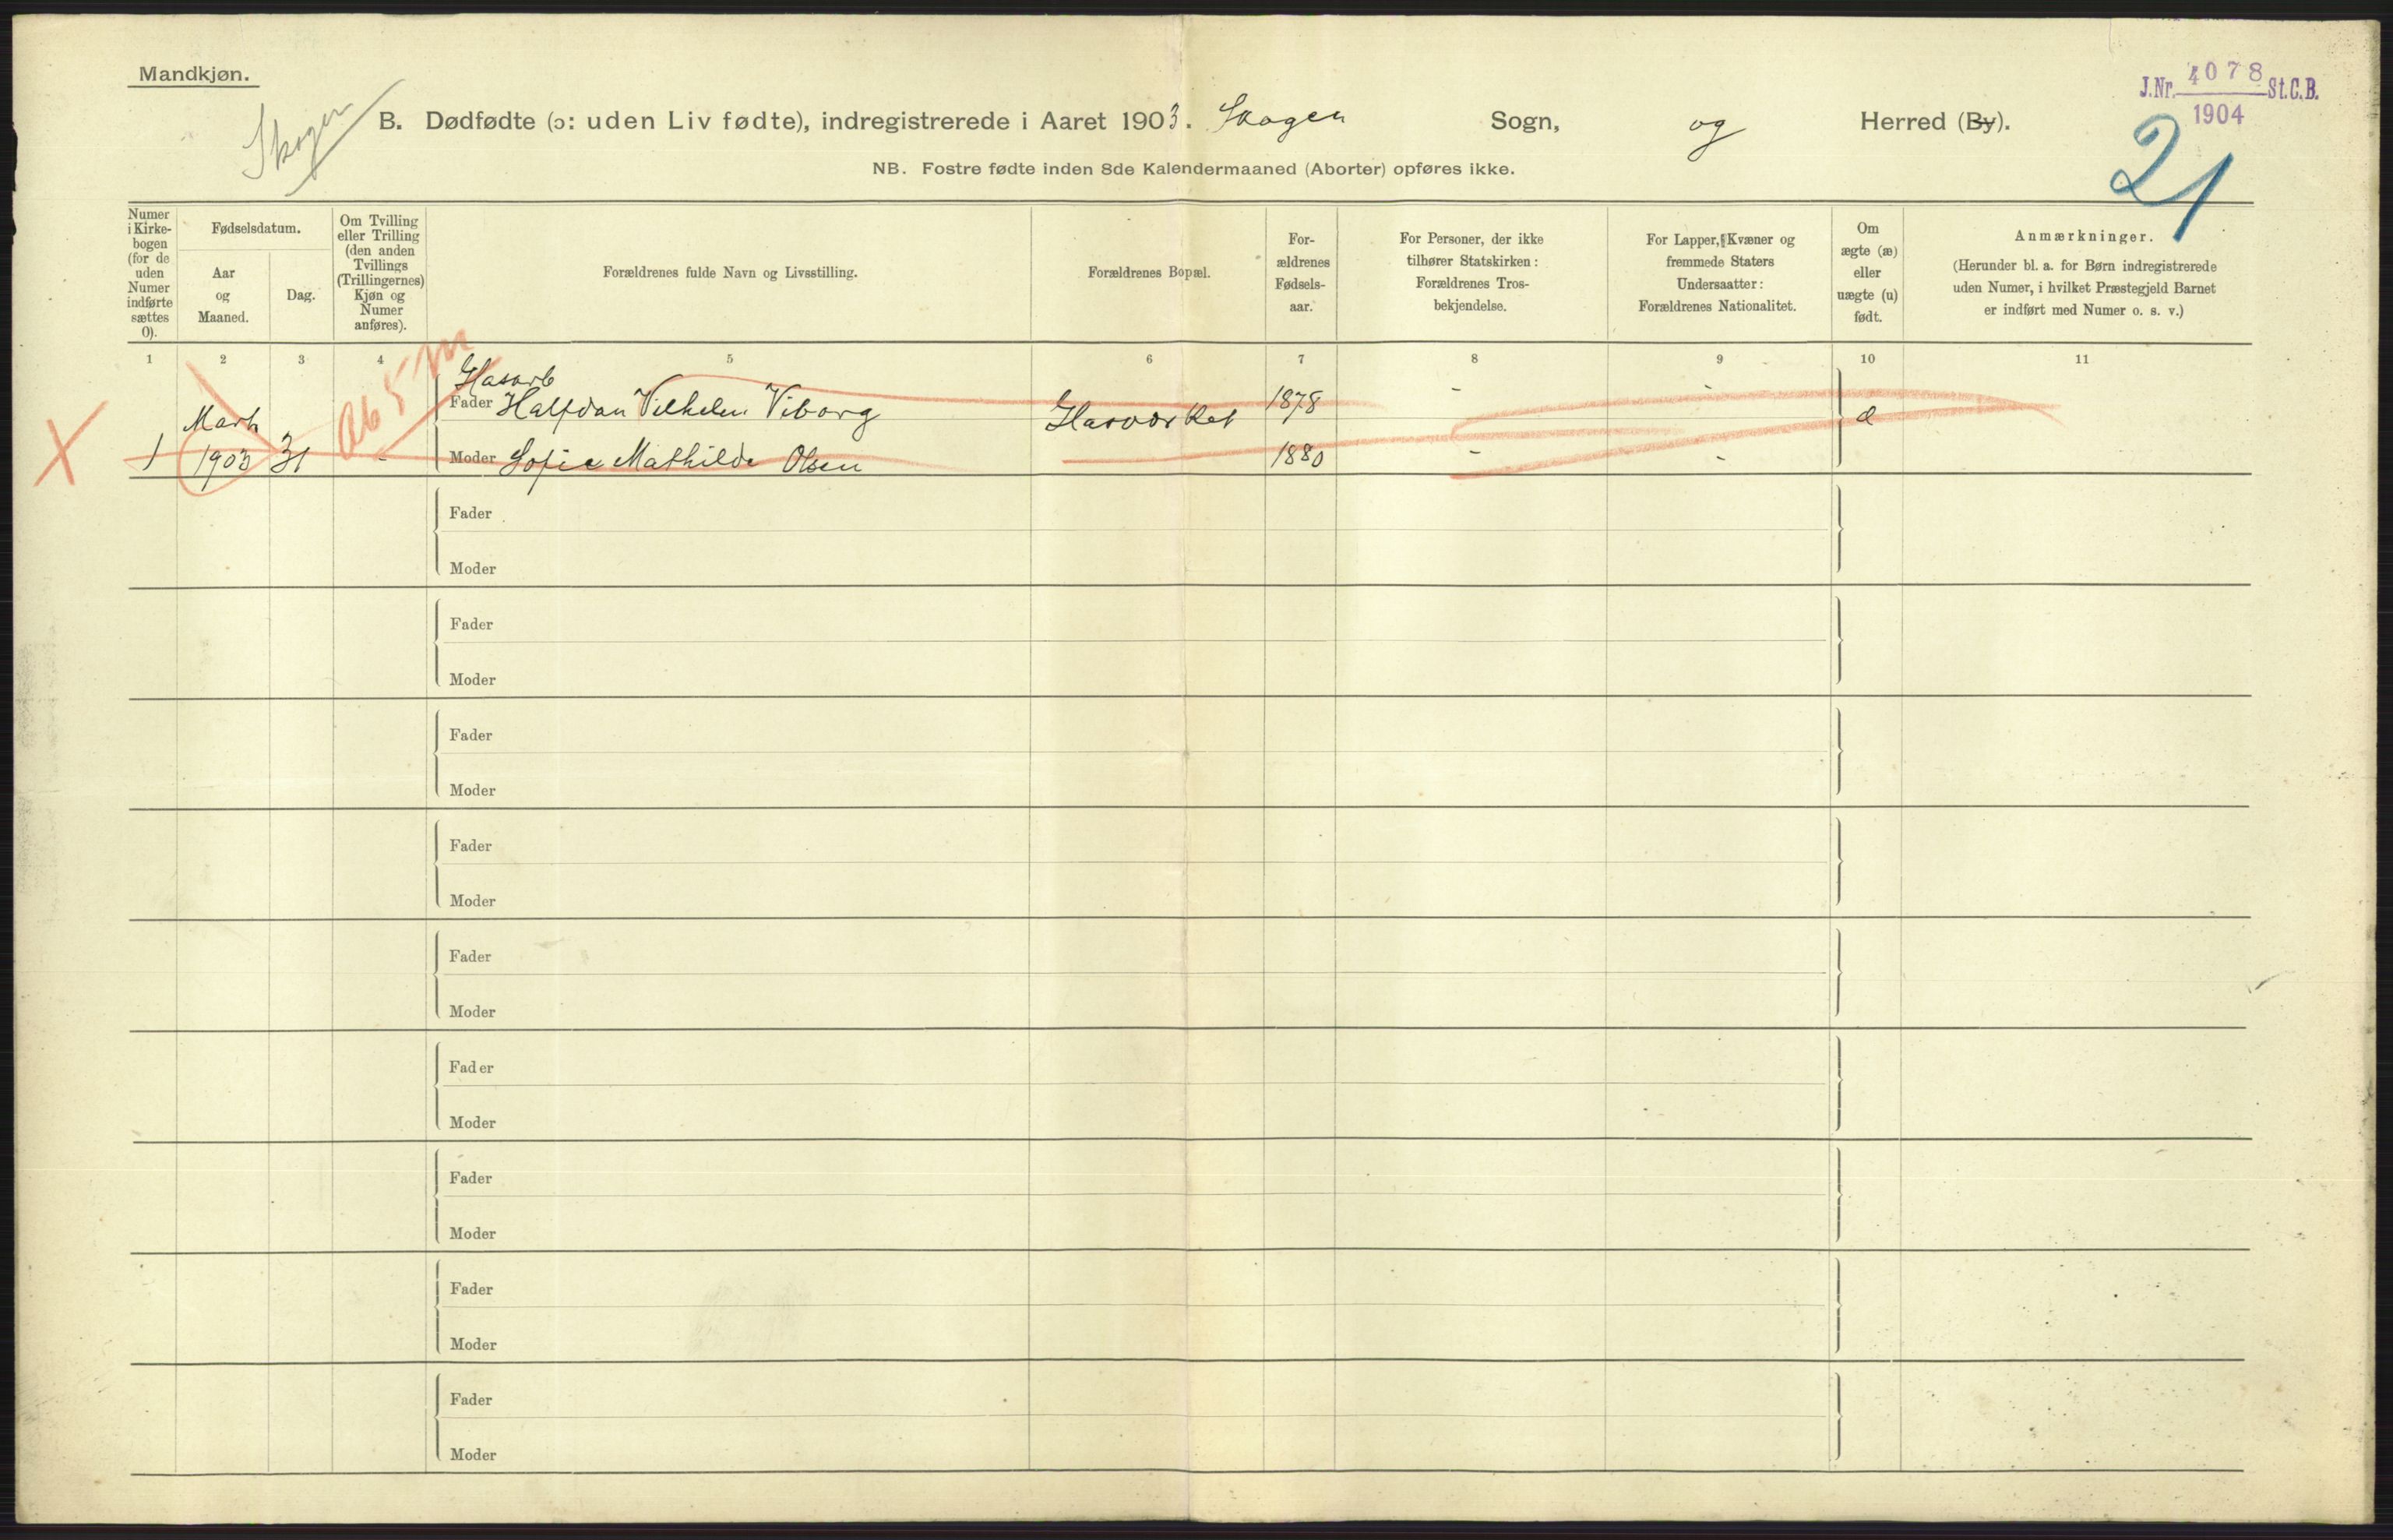 Mandkjøn.
J.Nr. 4078 St.C.B.
1904
21
Skoger
B. Dødfødte (ɔ: uden Liv fødte), indregistrerede i Aaret 1903. Skoger Sogn, og Herred (By).
NB. Fostre fødte inden 8de Kalendermaaned (Aborter) opføres ikke.
Numer
i Kirke-
bogen
(for de
uden
Numer
indførte
sættes
0).
Fødselsdatum.
Aar
og
Maaned.
Dag.
Om Tvilling
eller Trilling
(den anden
Tvillings
(Trillingernes)
Kjøn og
Numer
anføres).
Forældrenes fulde Navn og Livsstilling.
Forældrenes Bopæl.
For-
ældrenes
Fødsels-
aar.
For Personer, der ikke
tilhører Statskirken:
Forældrenes Tros-
bekjendelse.
For Lapper, Kvæner og
fremmede Staters
Undersaatter:
Forældrenes Nationalitet.
Om
ægte (æ)
eller
uægte (u)
født.
Anmærkninger.
(Herunder bl. a. for Børn indregistrerede
uden Numer, i hvilket Præstegjeld Barnet
er indført med Numer o. s. v.)
1 2 3 4 5 6 7 8 9 10 11
X
Ab 5 m
Glasarb
Fader Halfdan Vilhelm Viborg Glasværket 1878 - -
Marts æ
1 1903 31 - Moder Sofie Mathilde Olsen 1880 - -
Fader
Moder
Fader
Moder
Fader
Moder
Fader
Moder
Fader
Moder
Fader
Moder
Fader
Moder
Fader
Moder
Fader
Moder